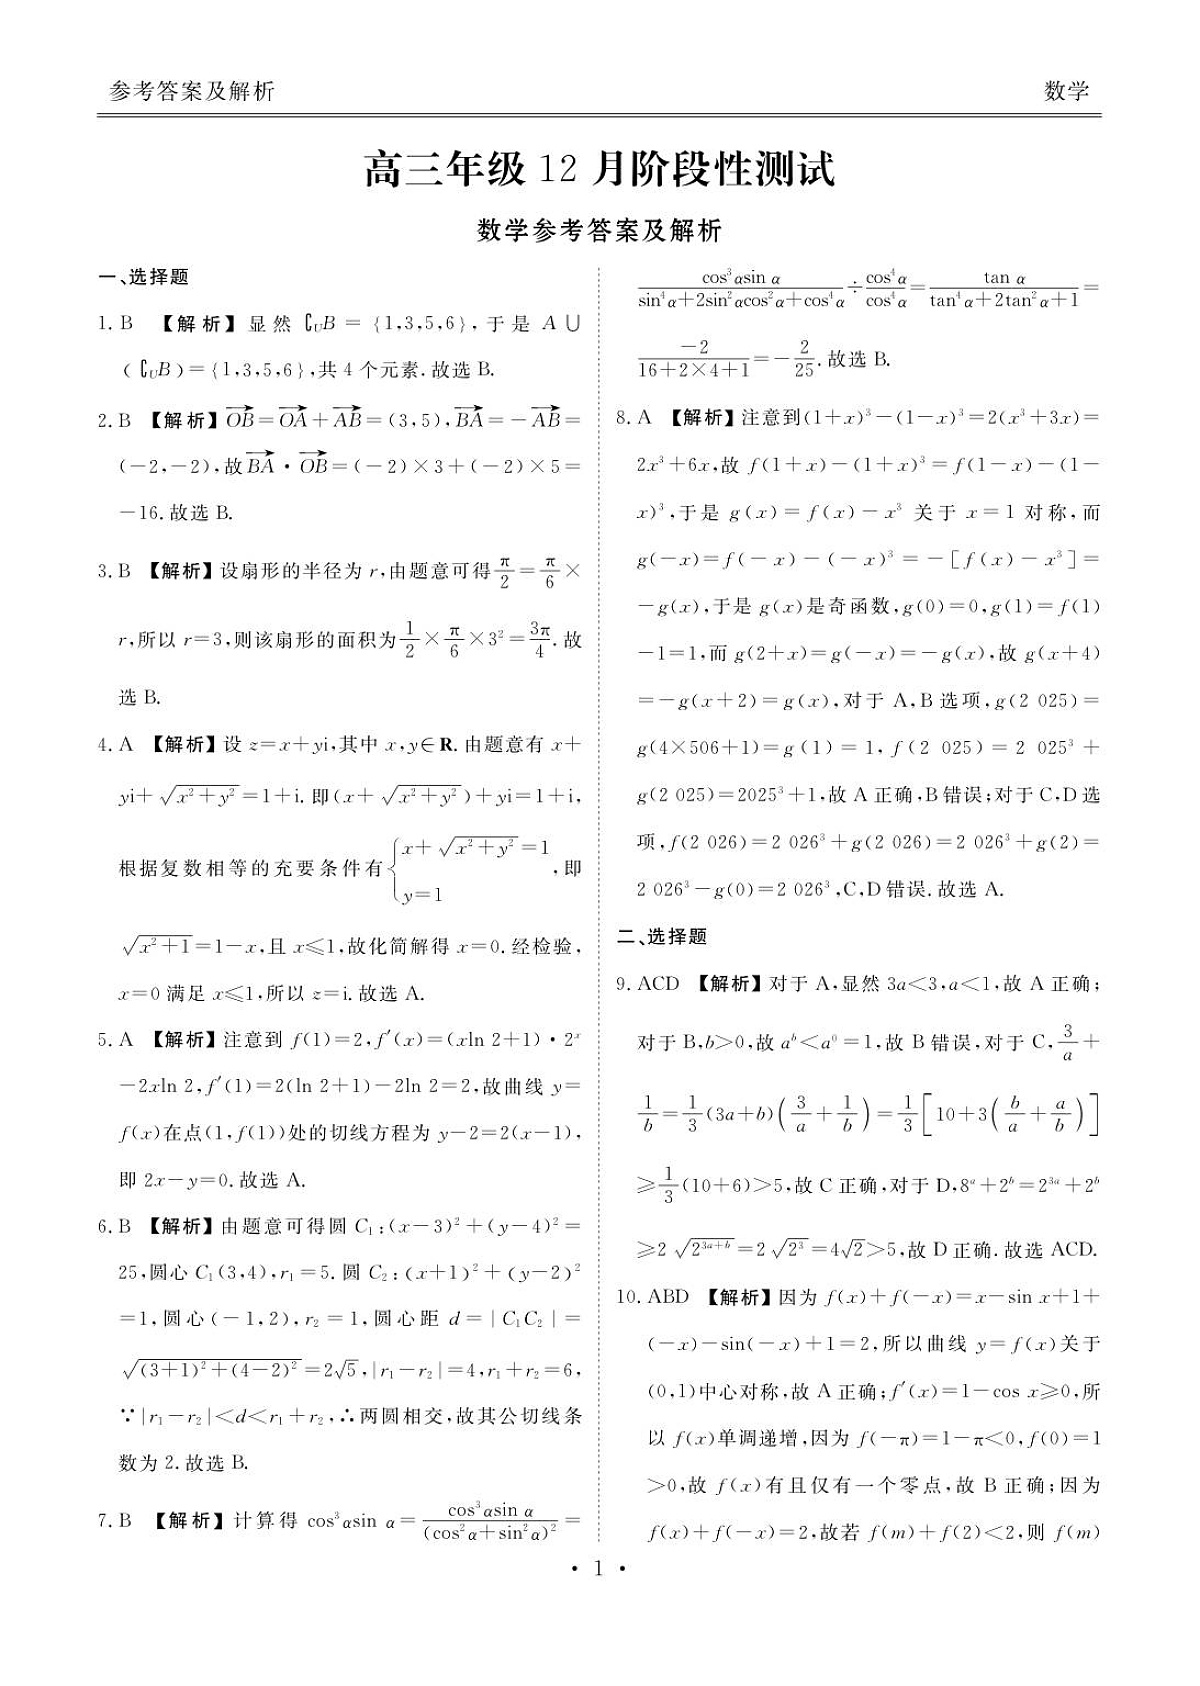 参考答案及解析 数学
高三年级 12 月阶段性测试
数学参考答案及解析
一、选择题
1. B 【解析】显然 ∁UB = {1,3,5,6}, 于是 A ∪
(∁UB)={1,3,5,6},共 4 个元素. 故选 B.
2. B 【解析】OB→=OA→+AB→=(3,5),BA→=-AB→=
(-2,-2),故BA→·OB→=(-2)×3+(-2)×5=
-16. 故选 B.
3. B 【解析】设扇形的半径为 r,由题意可得 π/2 = π/6 ×
r,所以 r=3,则该扇形的面积为 1/2 × π/6 ×3²= 3π/4. 故
选 B.
4. A 【解析】设 z=x+yi,其中 x,y∈R. 由题意有 x+
yi+√(x²+y²)=1+i. 即(x+√(x²+y²))+yi=1+i,
根据复数相等的充要条件有{x+√(x²+y²)=1
y=1 ,即
√(x²+1)=1-x,且 x≤1,故化简解得 x=0. 经检验,
x=0 满足 x≤1,所以 z=i. 故选 A.
5. A 【解析】注意到 f(1)=2,f′(x)=(xln 2+1)·2ˣ
-2xln 2,f′(1)=2(ln 2+1)-2ln 2=2,故曲线 y=
f(x)在点(1,f(1))处的切线方程为 y-2=2(x-1),
即 2x-y=0. 故选 A.
6. B 【解析】由题意可得圆 C₁:(x-3)²+(y-4)²=
25,圆心 C₁(3,4),r₁=5. 圆 C₂:(x+1)²+(y-2)²
=1,圆心(-1,2),r₂=1,圆心距 d=|C₁C₂|=
√((3+1)²+(4-2)²)=2√5,|r₁-r₂|=4,r₁+r₂=6,
∵|r₁-r₂|<d<r₁+r₂,∴两圆相交,故其公切线条
数为 2. 故选 B.
7. B 【解析】计算得 cos³αsin α= cos³αsin α/(cos²α+sin²α)² =
cos³αsin α/(sin⁴α+2sin²αcos²α+cos⁴α) ÷ cos⁴α/cos⁴α = tan α/(tan⁴α+2tan²α+1) =
-2/(16+2×4+1) =- 2/25. 故选 B.
8. A 【解析】注意到(1+x)³-(1-x)³=2(x³+3x)=
2x³+6x,故 f(1+x)-(1+x)³=f(1-x)-(1-
x)³,于是 g(x)=f(x)-x³ 关于 x=1 对称,而
g(-x)=f(-x)-(-x)³=-[f(x)-x³]=
-g(x),于是 g(x)是奇函数,g(0)=0,g(1)=f(1)
-1=1,而 g(2+x)=g(-x)=-g(x),故 g(x+4)
=-g(x+2)=g(x),对于 A,B 选项,g(2 025)=
g(4×506+1)=g(1)=1,f(2 025)=2 025³+
g(2 025)=2025³+1,故 A 正确,B 错误;对于 C,D 选
项,f(2 026)=2 026³+g(2 026)=2 026³+g(2)=
2 026³-g(0)=2 026³,C,D 错误. 故选 A.
二、选择题
9. ACD 【解析】对于 A,显然 3a<3,a<1,故 A 正确;
对于 B,b>0,故 aᵇ<a⁰=1,故 B 错误,对于 C, 3/a +
1/b = 1/3 (3a+b)(3/a + 1/b)= 1/3 [10+3(b/a + a/b)]
≥ 1/3 (10+6)>5,故 C 正确,对于 D,8ᵃ+2ᵇ=2³ᵃ+2ᵇ
≥2√(2³ᵃ⁺ᵇ)=2√(2³)=4√2>5,故 D 正确. 故选 ACD.
10. ABD 【解析】因为 f(x)+f(-x)=x-sin x+1+
(-x)-sin(-x)+1=2,所以曲线 y=f(x)关于
(0,1)中心对称,故 A 正确;f′(x)=1-cos x≥0,所
以 f(x)单调递增,因为 f(-π)=1-π<0,f(0)=1
>0,故 f(x)有且仅有一个零点,故 B 正确;因为
f(x)+f(-x)=2,故若 f(m)+f(2)<2,则 f(m)
· 1 ·